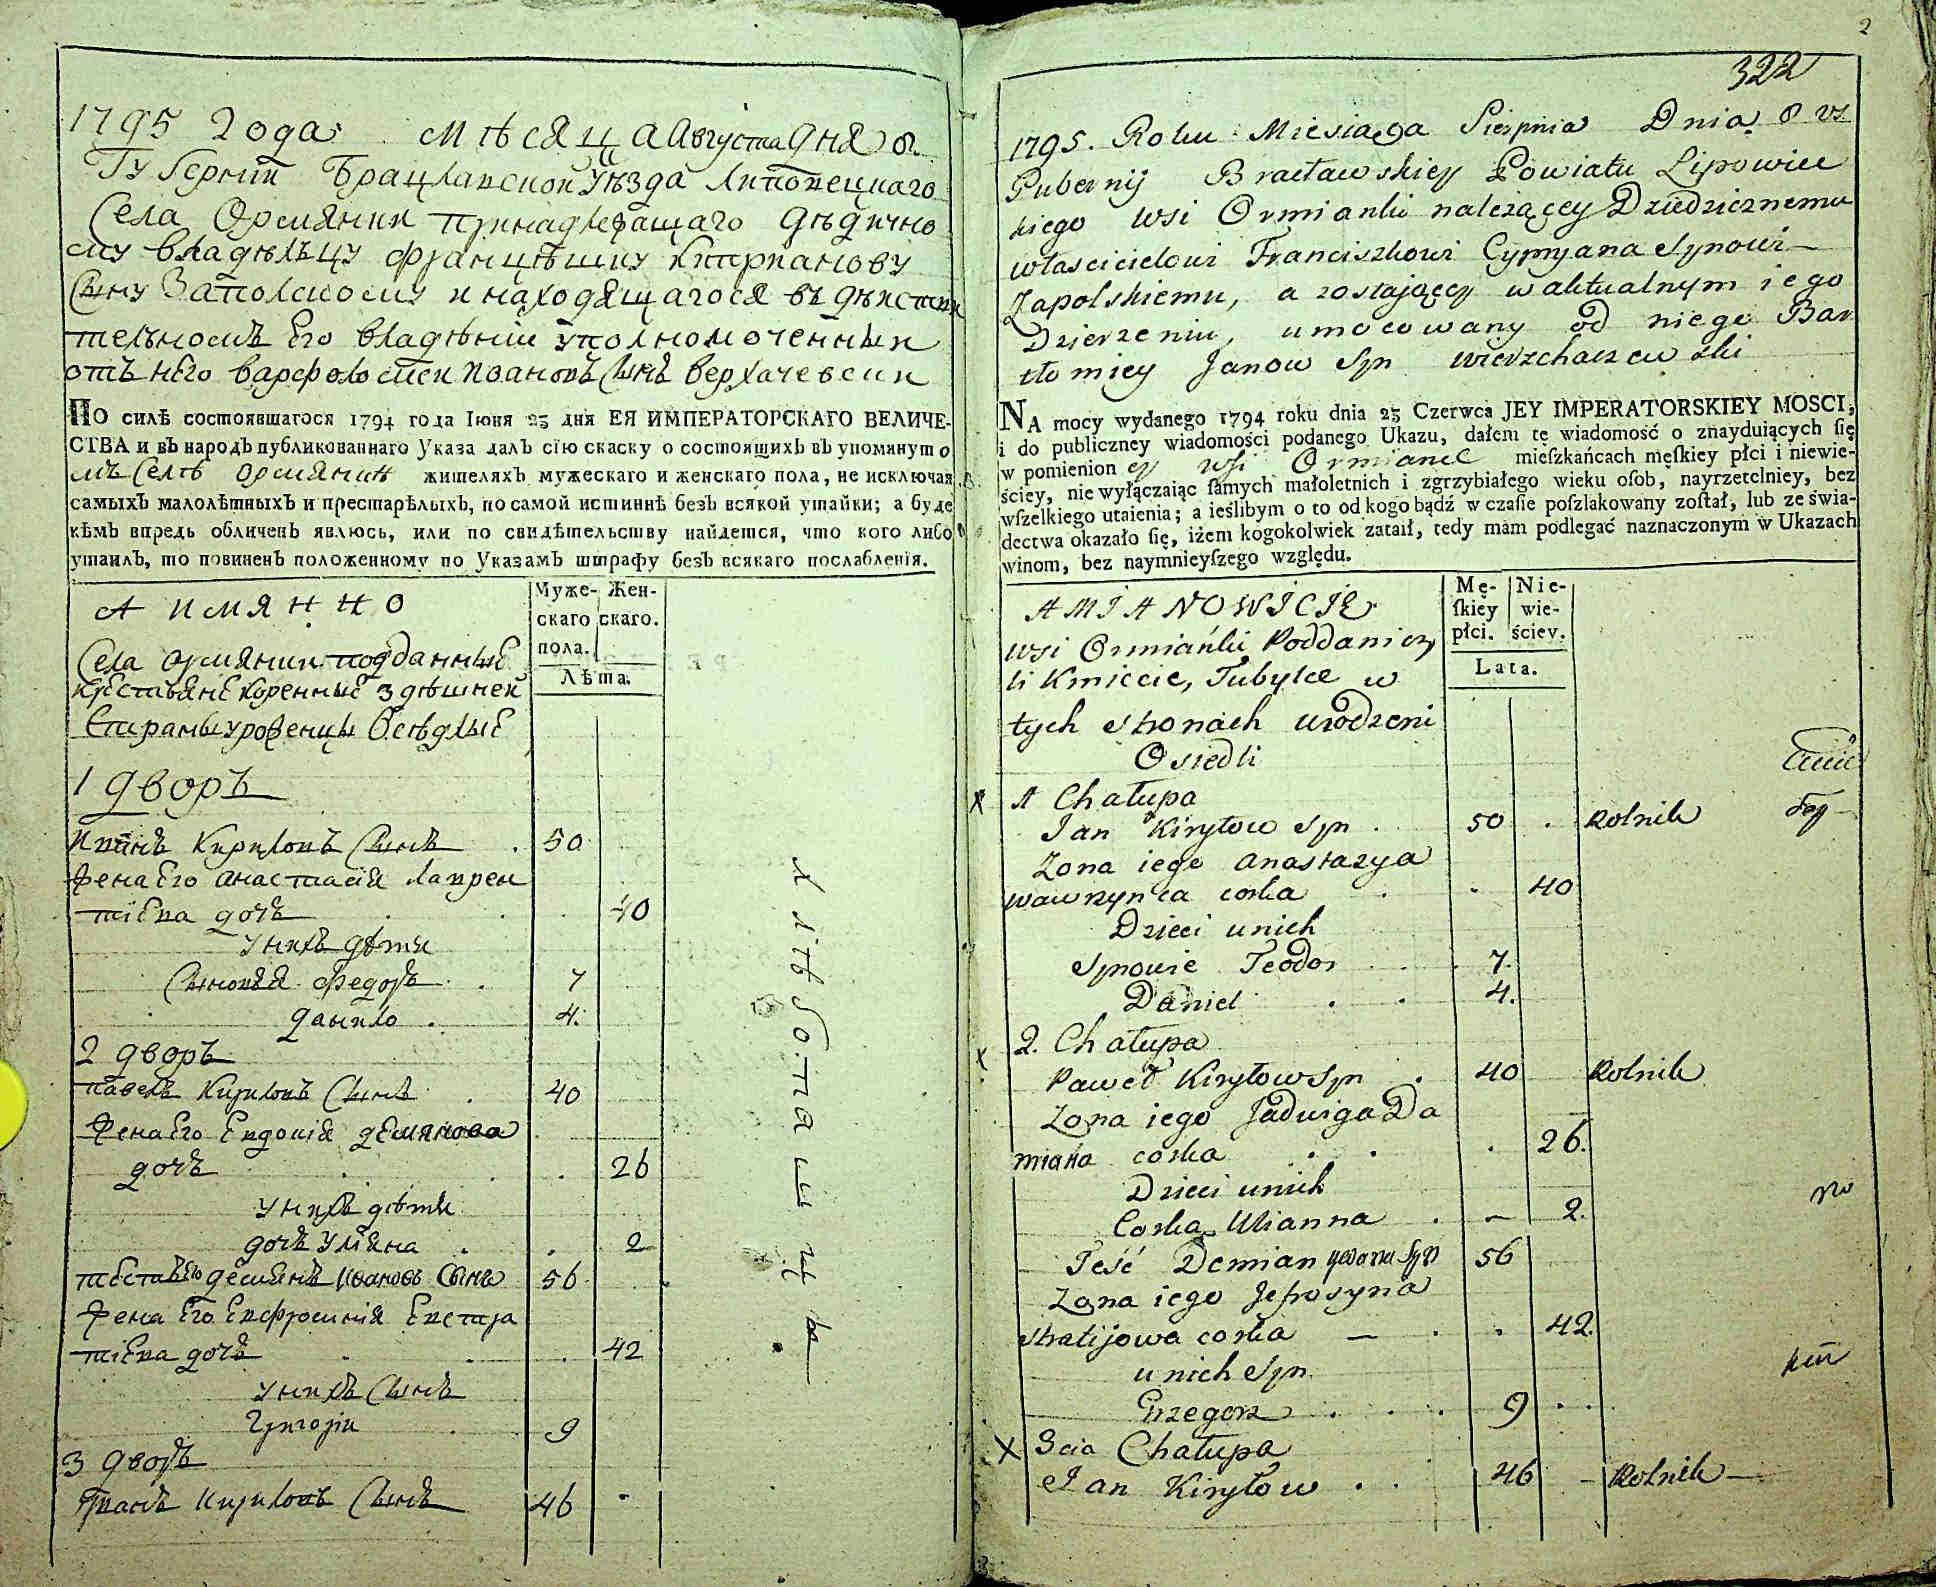 1795 года Мѣсяца Августа дня 8.
Губерніи Брацлавской Уѣзда Липовецкаго
Села Ормянки принадлежащаго Дѣдично
му владѣльцу францѣшку Киприанову
Сыну Запольскому и находящагося въ дѣистви
тельномъ Его владѣніи уполномоченный
отъ него варфоломеи Ивановъ Сынъ
По силѣ состоявшагося 1794 года Іюня 23 дня ЕЯ ИМПЕРАТОРСКАГО ВЕЛИЧЕ-
СТВА и въ народъ публикованнаго Указа далъ сію скаску о состоящихъ въ упомянуто
мъ Селѣ Ормянкѣ жителяхъ мужескаго и женскаго пола, не исключая
самыхъ малолѣтныхъ и престарѣлыхъ, по самой истиннѣ безъ всякой утайки; а буде
кѣмъ впредь обличенъ явлюсь, или по свидѣтельству найдется, что кого либо
утаилъ, то повиненъ положенному по Указамъ штрафу безъ всякаго послабленія.
А имянно
Муже- Жен-
скаго скаго.
пола.
Лѣта.
Села Ормянки подданные
крестьяне коренные здѣшней
Стараны уроженцы Осѣдлые
1 дворъ
Иванъ Кириловъ Сынъ . 50
жена Его Анастасія Лаврен
тіева дочь . 40
у нихъ дѣти
Сыновя Федоръ . 7
данило . 4.
2 дворъ
павелъ Кириловъ Сынъ . 40
жена Его Евдокія демянова
дочь . 26
у нихъ дѣти
дочь Уліяна . 2
тесть Его демянъ Ивановъ Сынъ 56
жена Его Евфросинія Евстра
тіева дочь . 42
у нихъ Сынъ
Григоріи 9
3 дворъ
Иванъ Кириловъ Сынъ 46
хлѣбопашцы
2
322
1795. Roku Miesiąca Sierpnia Dnia 8 vs
Gubernij Bracławskiey Powiatu Lipowiec
kiego wsi Ormianki należącey Dziedzicznemu
włascicielowi Franciszkowi Cypryana Synowi
Zapolskiemu, a zostającey w aktualnym iego
Dzierzeniu, umocowany od niego Bar
tłomiey Janow Syn
NA mocy wydanego 1794 roku dnia 23 Czerwca JEY IMPERATORSKIEY MOSCI,
i do publiczney wiadomości podanego Ukazu, dałem tę wiadomość o znayduiących ſię
w pomienion ey wsi Ormiance mieſzkańcach męſkiey płci i niewie-
ściey, nie wyłączaiąc ſamych małoletnich i zgrzybiałego wieku oſob, nayrzetelniey, bez
wſzelkiego utaienia; a ieślibym o to od kogo bądź w czaſie poſzlakowany zoſtał, lub ze świa-
dectwa okazało ſię, iżem kogokolwiek zataił, tedy mam podlegać naznaczonym w Ukazach
winom, bez naymnieyſzego względu.
A MIANOWICIE
Mę- Nie-
ſkiey wie-
płci. ściey.
Lata.
wsi Ormiańki Poddani czy
li Kmiecie, Tubylce w
tych stronach urodzeni
Osiedli
1 Chałupa
Jan Kiryłow Syn . 50 . Rolnik
Zona iego Anastazya
wawrzyńca corka . . 40
Dzieci unich
Synowie Teodor . 7.
Daniel . . 4.
2. Chałupa
Paweł Kiryłow Syn . 40 Rolnik
Zona iego Jadwiga Da
miana corka . . . 26.
Dzieci unich
Corka Ulianna . — 2.
Teść Demian Jwana Syn 56
Zona iego Jefrosyna
stratijowa corka — . . 42.
unich Syn
Grzegorz . . . 9 . .
3cia Chałupa
Jan Kiryłow . . 46 - Rolnik